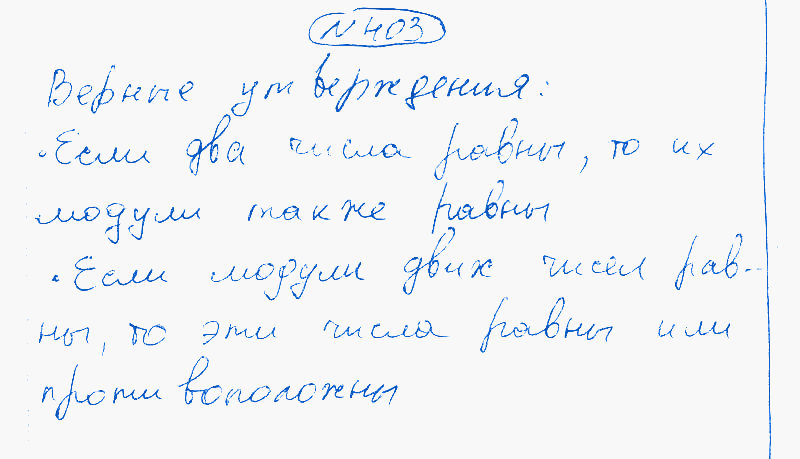 N 403
Верные утверждения:
• Если два числа равны, то их
модули также равны
• Если модули двих чисел рав-
ны, то эти числа равны или
противоположны